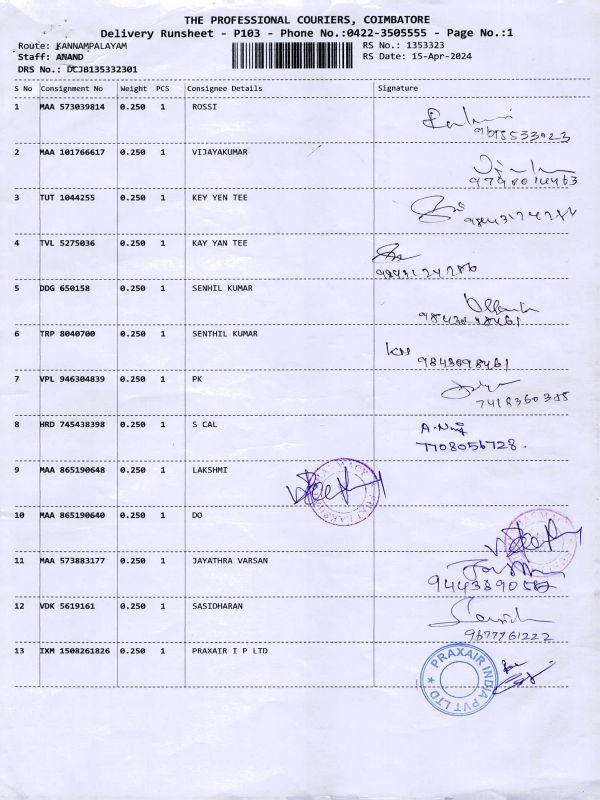 THE PROFESSIONAL COURIERS, COIMBATORE
Delivery Runsheet - P103 - Phone No.:0422-3505555 - Page No.:1
Route: KANNAMPALAYAM RS No.: 1353323
Staff: ANAND RS Date: 15-Apr-2024
DRS No.: DCJB135332301
S No Consignment No Weight PCS Consignee Details Signature
1 MAA 573039814 0.250 1 ROSSI
2 MAA 101766617 0.250 1 VIJAYAKUMAR
3 TUT 1044255 0.250 1 KEY YEN TEE
4 TVL 5275036 0.250 1 KAY YAN TEE
5 DDG 650158 0.250 1 SENHIL KUMAR
6 TRP 8040700 0.250 1 SENTHIL KUMAR
9843098461
7 VPL 946304839 0.250 1 PK
8 HRD 745438398 0.250 1 S CAL
7708056728.
9 MAA 865190648 0.250 1 LAKSHMI
10 MAA 865190640 0.250 1 DO
11 MAA 573883177 0.250 1 JAYATHRA VARSAN
12 VDK 5619161 0.250 1 SASIDHARAN
9677761222
13 IXM 1508261826 0.250 1 PRAXAIR I P LTD
PRAXAIR INDIA PVT LTD